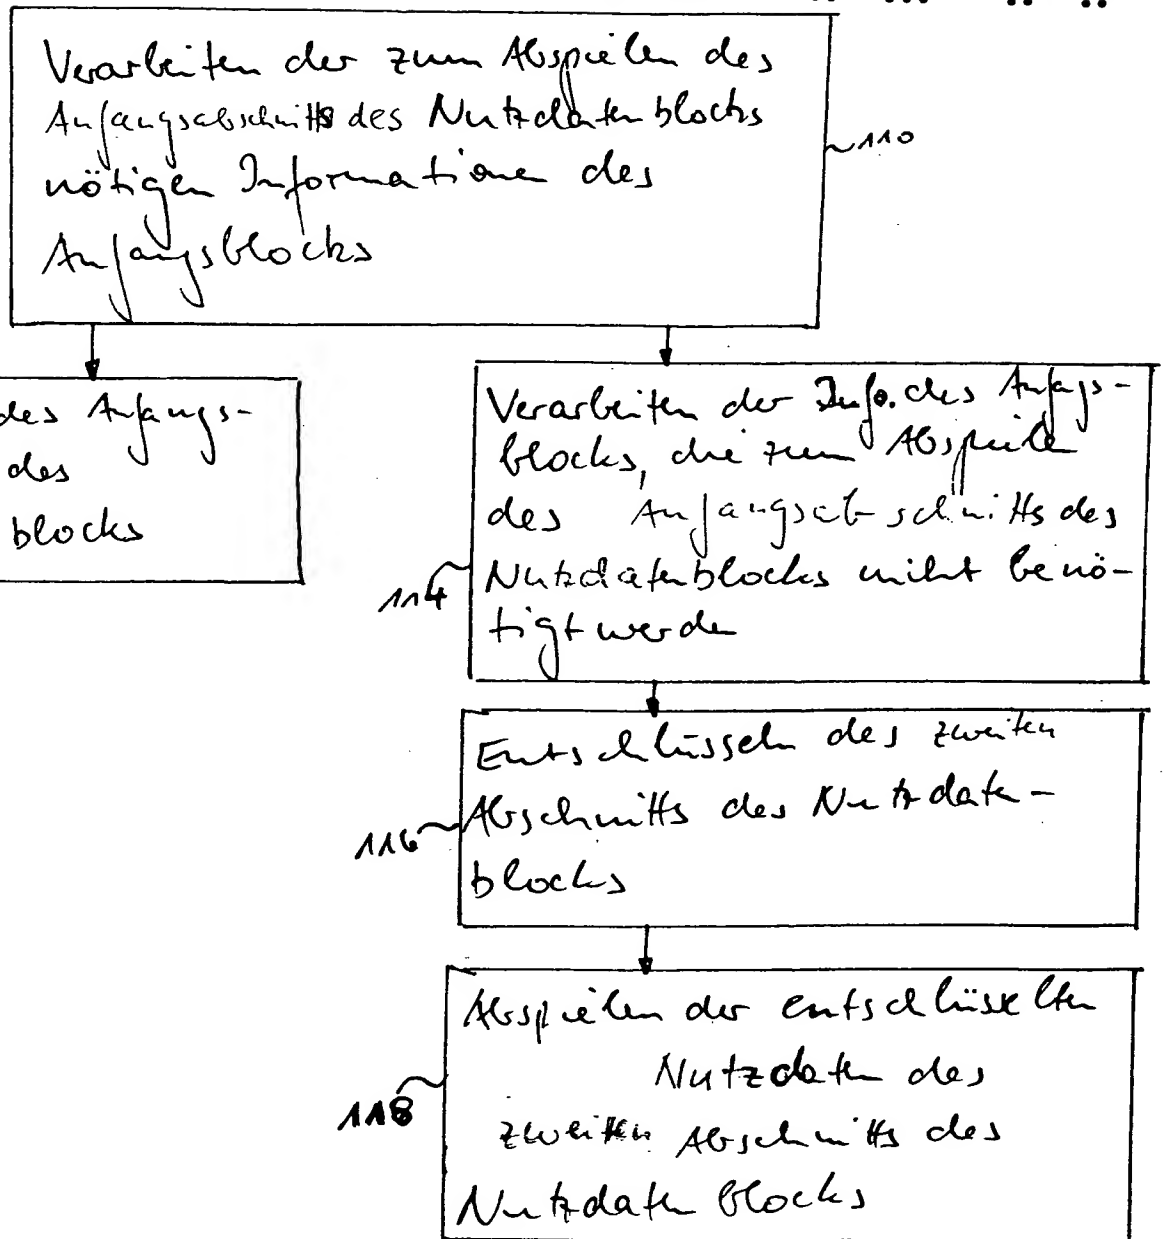 Verarbeiten der zum Abspielen des
Anfangsabschnitts des Nutzdatenblocks
nötigen Informationen des
Anfangsblocks
110
des Anfangs-
des
blocks
Verarbeiten der Info. des Anfags-
blocks, die zum Abspiele
des Anfangsabschnitts des
Nutzdatenblocks nicht benö-
tigt werden
114
Entschlüsseln des zweiten
Abschnitts des Nutzdaten-
blocks
116
Abspielen der entschlüsselten
Nutzdaten des
zweiten Abschnitts des
Nutzdatenblocks
118